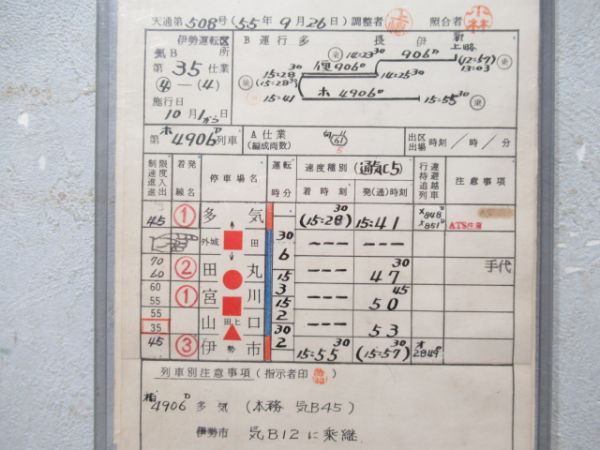 天通第508号(55年9月26日) 調整者 照合者 小林
伊勢運転区所
気B
B 運行 多 長 伊
第35仕業
④—(4)
施行日
10月1日から
14:23 30 906D (12:59)
便906D 14:25 30 13:03
15:28 30
(15:28)
15:41 ホ 4906D 15:55 30
第ホ4906D列車 A 仕業 (編成両数) 出区 出場 時刻 / 時 / 分
制限速度 進入 進出 着発線名 停車場名 運転時分 速度種別 通気C5 行違 待避 追越 列車 注意事項
着時刻 発(通)時刻
45 ① 多気 (15:28) 30 15:41 848D 851D ATS注意
外城田 30 --- ---
70 60 ② 田丸 6 15 --- 47 30 手代
60 55 ① 宮川 3 15 --- 50 45
55 35 山田上口 2 30 --- 53
45 ③ 伊勢市 2 15:55 30 (15:57) 30 2849D
列車別注意事項 (指示者印)
4906D 多気 (本務 気B45)
伊勢市 気B12に乗継